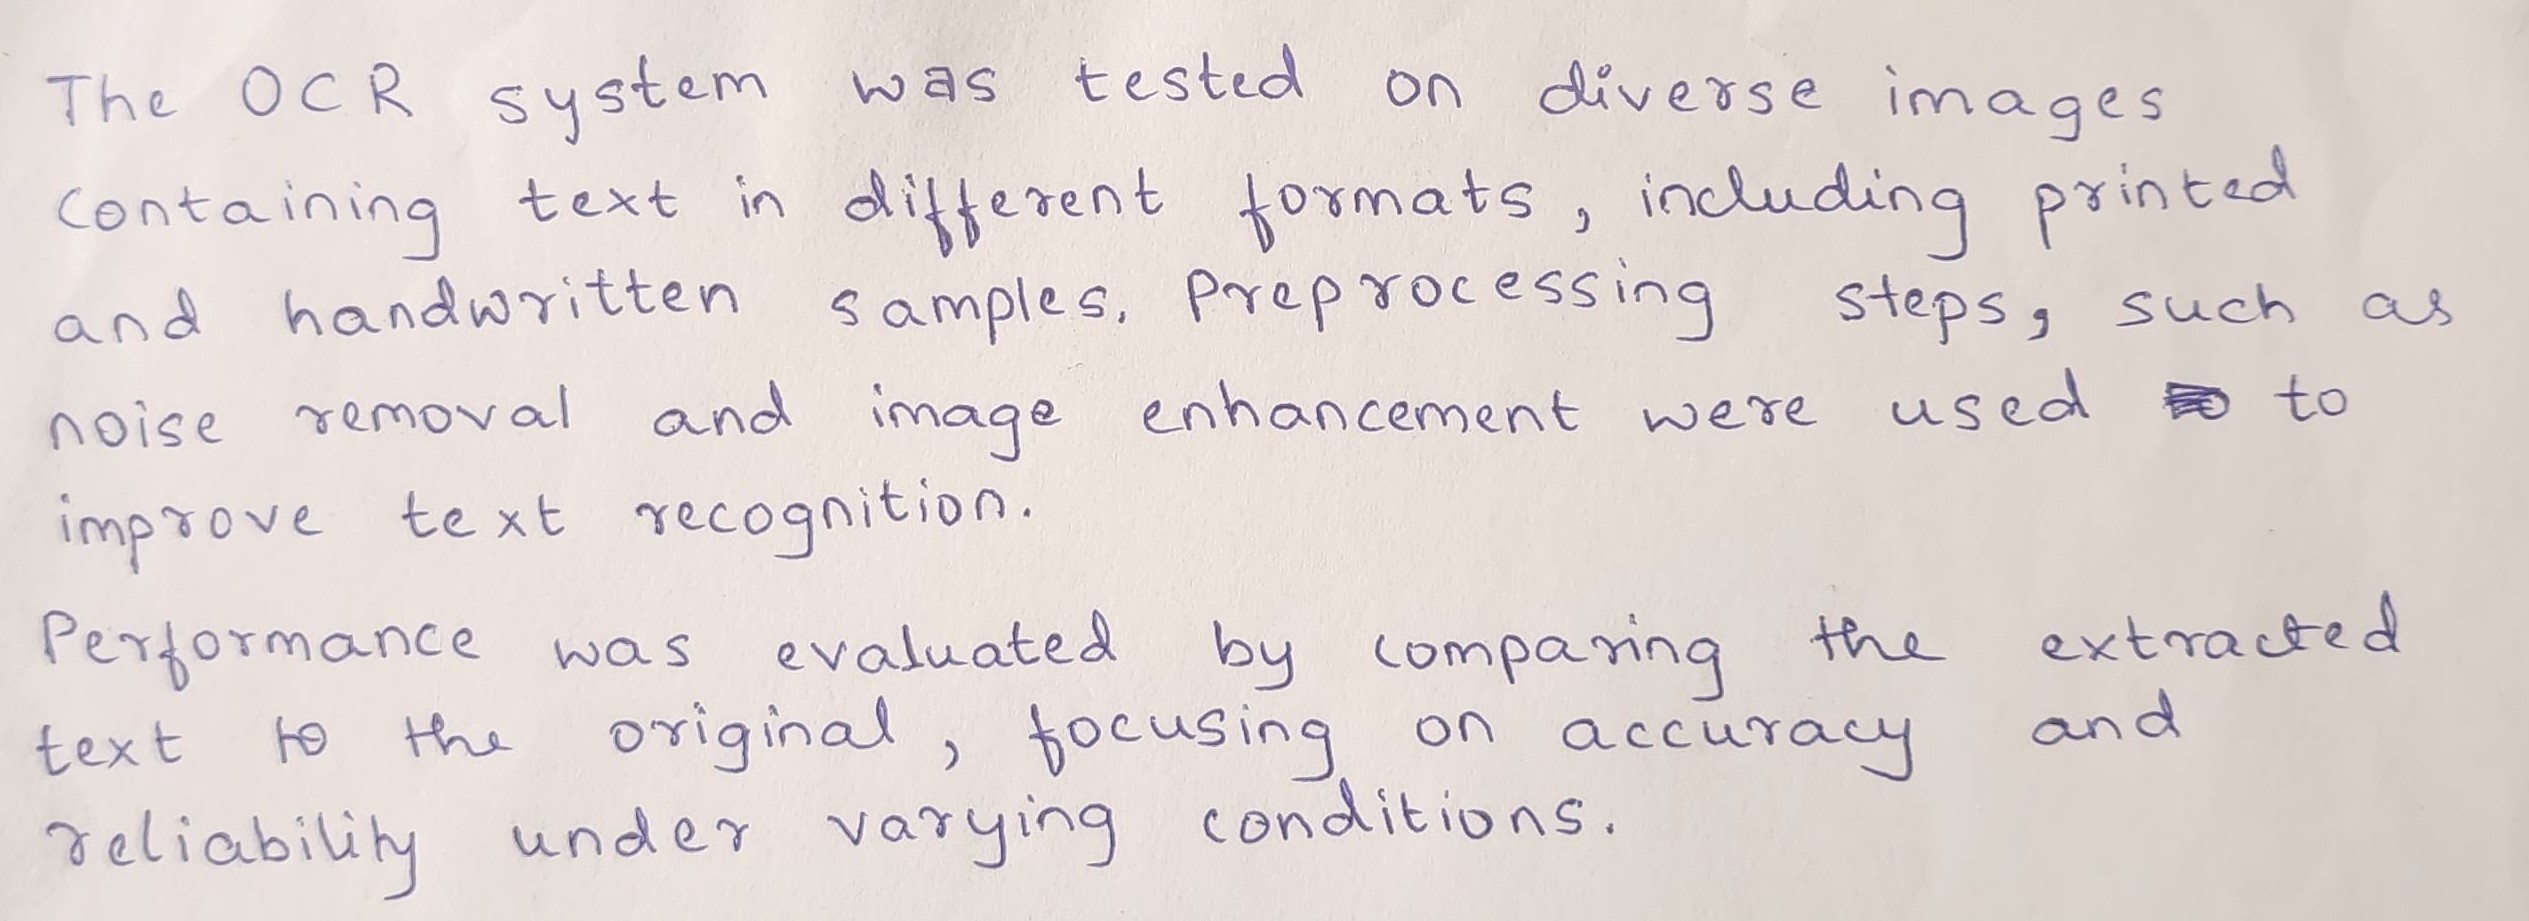 The OCR system was tested on diverse images
containing text in different formats, including printed
and handwritten samples. Preprocessing steps, such as
noise removal and image enhancement were used to
improve text recognition.
Performance was evaluated by comparing the extracted
text to the original, focusing on accuracy and
reliability under varying conditions.